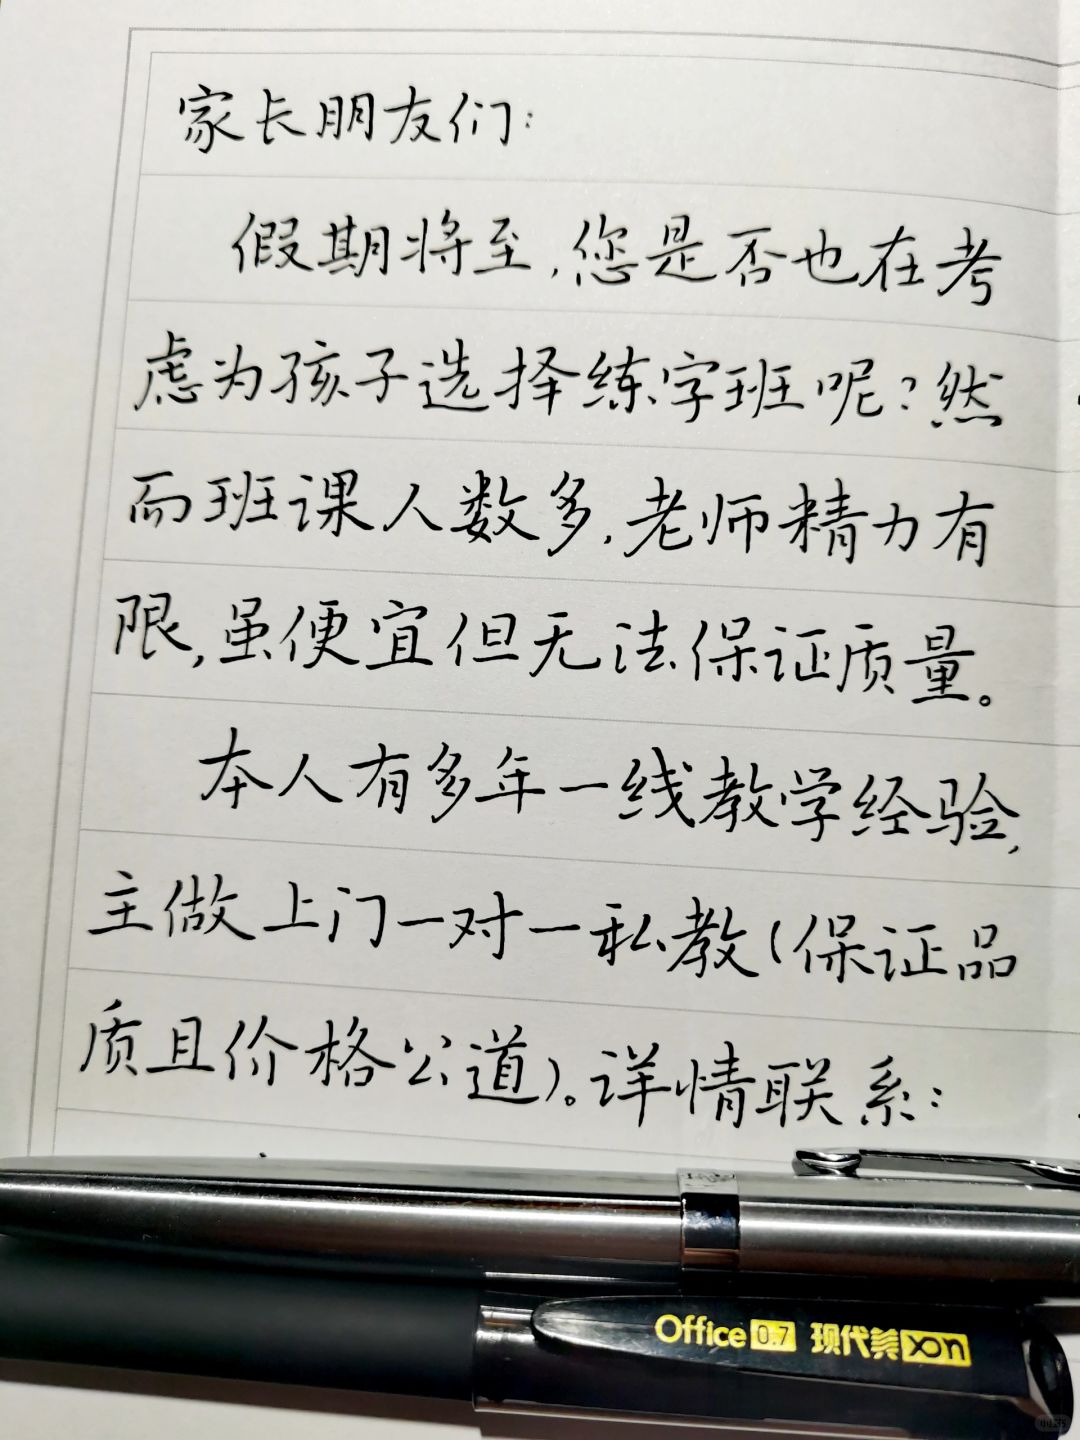 家长朋友们：
假期将至，您是否也在考
虑为孩子选择练字班呢？然
而班课人数多，老师精力有
限，虽便宜但无法保证质量。
本人有多年一线教学经验，
主做上门一对一私教（保证品
质且价格公道）。详情联系：
Office 0.7 现代美 xon